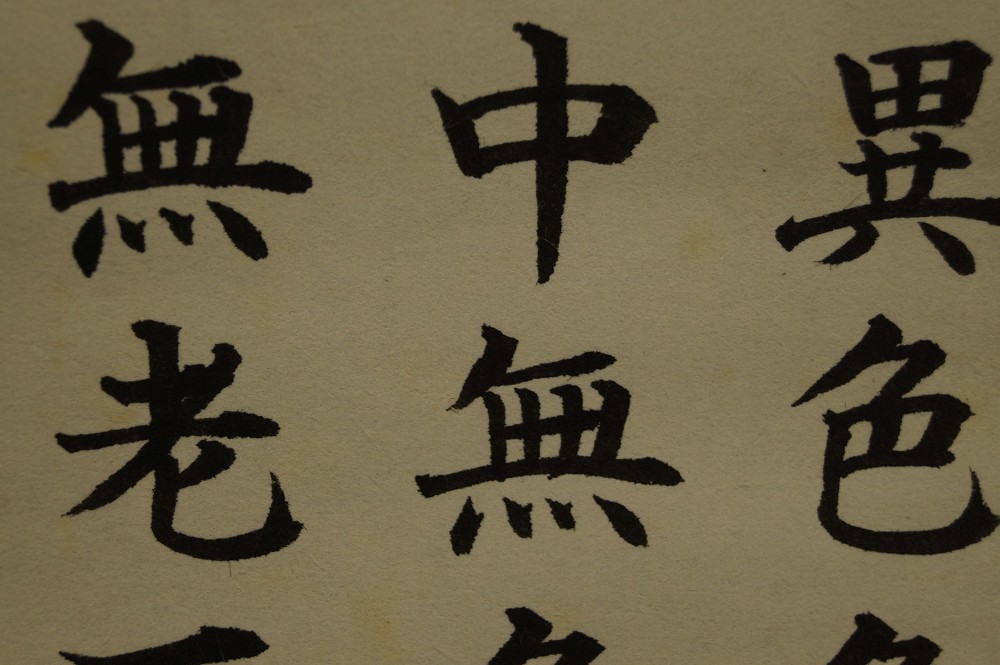 異色
中無
無老